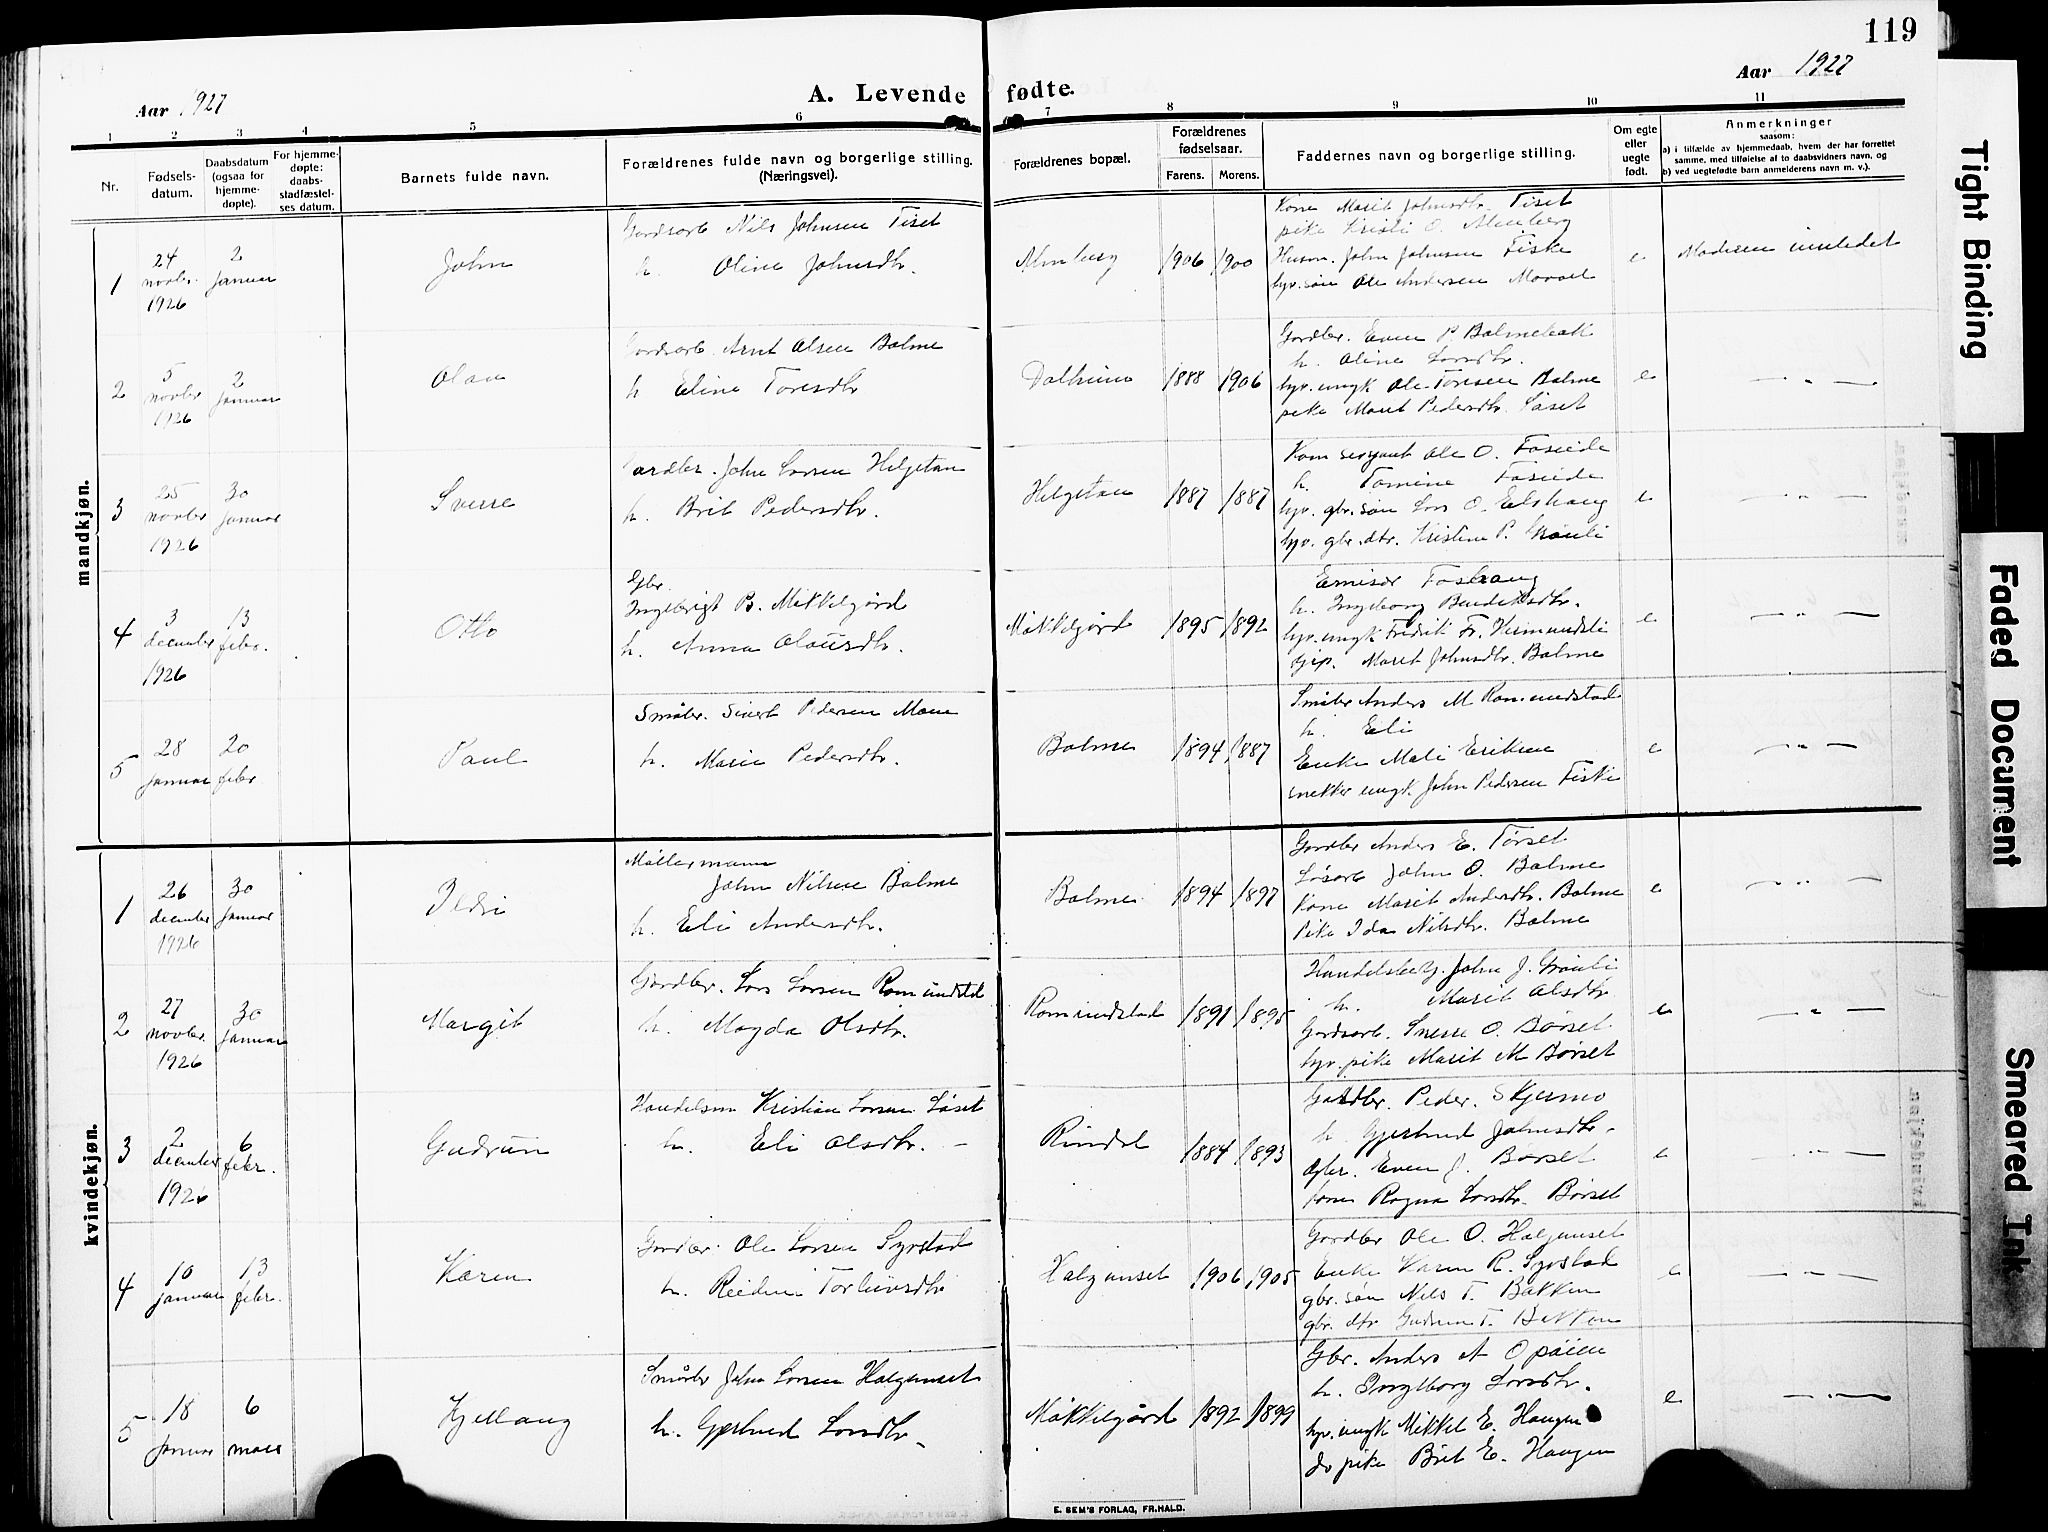 119
Aar 1927
A. Levende fødte.
Aar 1927
1 2 3 4 5 6 7 8 9 10 11
Nr.
Fødsels-
datum.
Daabsdatum
(ogsaa for
hjemme-
døpte).
For hjemme-
døpte:
daabs-
stadfæstel-
ses datum.
Barnets fulde navn.
Forældrenes fulde navn og borgerlige stilling.
(Næringsvei).
Forældrenes bopæl.
Forældrenes
fødselsaar.
Farens. Morens.
Faddernes navn og borgerlige stilling.
Om egte
eller
uegte
født.
Anmerkninger
saasom:
a) i tilfælde av hjemmedaab, hvem der har forrettet
samme, med tilføielse af to daabsvidners navn, og
b) ved uegtefødte barn anmelderens navn m. v.).
mandkjøn.
1
24
novbr.
1926
2
januar
John
Gardsarb Nils Johnsen Tiset
h. Oline Johnsdtr.
Almberg
1906 1900
Kone Marit Johnsdtr. Tiset
pike Kristi O. Almberg
Husm. John Johnsen Fiske
hjv. søn Ole Andersen Moen
e
Moderen innledet
2
5
novbr
1926
2
januar
Olav
Gardsarb. Arnt Olsen Bolme
h Eline Toresdtr
Dalheim
1888 1906
Gardbr. Even P. Bolme
h. Oline Larsdtr.
hjv. ungk Ole Toresen Bolme
pike Marit Pedersdtr. Løset
e
— " —
3
25
novbr
1926
30
januar
Sverre
Gardbr. John Larsen Helgetun
h. Brit Pedersdtr.
Helgetun
1887 1887
Kom sersjant Ole O. Foseide
h. Tomine Foseide
hjv. gbr. søn Lars O. Elshaug
hjv. gbr. dtr. Kristine P. Grønli
e
— " —
4
3
december
1926
13
febr.
Otto
Gbr.
Ingebrigt B. Mikkelgård
h. Anna Olausdtr.
Mikkelgård
1895 1892
Emisær Foshaug
h. Ingeborg Bendiksdtr.
hjv. ungk Fredrik Fr. Heimundsli
Gip. Marit Johnsdtr. Bolme
e
— " —
5
28
januar
20
febr
Paul
Småbr. Sivert Pedersen Moen
h. Marie Pedersdtr.
Bolme
1894 1887
Småbr Anders M Romundstad
h. Eli
Enke Mali Eriksen
snekker ungk. John Pedersen Fiske
e
— " —
kvindekjøn.
1
26
december
1926
30
januar
Ildri
Møllermann
John Nilsen Bolme
h. Eli Andersdtr.
Bolme
1894 1897
Gardbr Anders E. Tørset
Løsarb John O. Bolme
Kone Marit Andersdtr. Bolme
Pike Ida Nilsdtr. Bolme
e
— " —
2
27
novbr.
1926
30
januar
Margit
Gardbr. Lars Larsen Romundstd
h. Magda Olsdtr.
Romundstad
1891 1895
Handelsbetj. John J. Grønli
h. Marit Olsdtr
Gardsarb. Sverre O. Børset
hjv. pike Marit M Børset
e
— " —
3
2
december
1926
6
febr.
Gudrun
Handelsm Kristian Larsen Løset
h. Eli Olsdtr. —
Rindal
1884 1893
Gardbr. Peder. Skjermo
h. Gjertrud Johnsdtr.
Gbr. Even J. Børset
kone Ragna Larsdtr. Børset
e
— " —
4
10
januar
13
febr.
Karen
Gardbr. Ole Larsen Syrstad
h. Reidun Torleivsdtr
Halgunset
1906 1905
Gardbr Ole O. Halgunset
Enke Karen R. Syrstad
gbr. søn Nils T. Bakken
gbr. dtr Gudrun T. Bakken
e
— " —
5
18
januar
6
mars
Kjellaug
Småbr John Larsen Halgunset
h. Gjertrud Larsdtr
Mikkelgård
1892 1899
Gbr. Anders A Opøien
h. Ingeborg Larsdtr.
hjv. ungk Mikkel E. Haugen
do pike Brit E. Haugen
e
— " —
E. SEM'S FORLAG, FR.HALD.
Tight Binding
Faded Document
Smeared Ink